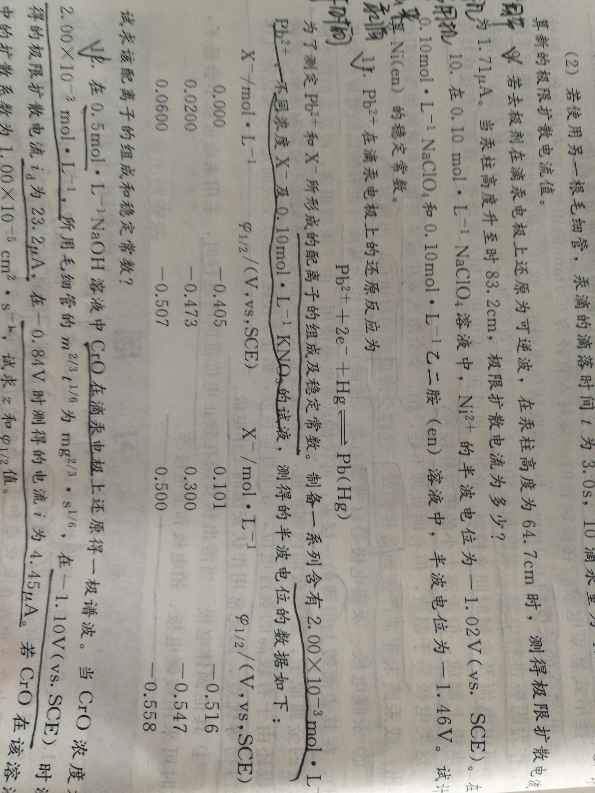 (2) 若使用另一根毛细管，汞滴的滴落时间 t 为 3.0s，10 滴汞重为
算新的极限扩散电流值。
若去极剂在滴汞电极上还原为可逆波，在汞柱高度为 64.7cm 时，测得极限扩散电流
为 1.71μA。当汞柱高度升至时 83.2cm，极限扩散电流为多少？
10. 在 0.10 mol·L⁻¹ NaClO₄ 溶液中，Ni²⁺ 的半波电位为 −1.02V(vs. SCE)。在
0.10mol·L⁻¹ NaClO₄ 和 0.10mol·L⁻¹ 乙二胺 (en) 溶液中，半波电位为 −1.46V。试计
Ni(en) 的稳定常数。
11. Pb²⁺ 在滴汞电极上的还原反应为
Pb²⁺ + 2e⁻ + Hg ⇌ Pb(Hg)
为了测定 Pb²⁺ 和 X⁻ 所形成的配离子的组成及稳定常数。制备一系列含有 2.00×10⁻³ mol·L⁻
Pb²⁺、不同浓度 X⁻ 及 0.10mol·L⁻¹ KNO₃ 的试液，测得的半波电位的数据如下：
X⁻/mol·L⁻¹ φ1/2/(V,vs,SCE) X⁻/mol·L⁻¹ φ1/2/(V,vs,SCE)
0.000 −0.405 0.101 −0.516
0.0200 −0.473 0.300 −0.547
0.0600 −0.507 0.500 −0.558
试求该配离子的组成和稳定常数？
12. 在 0.5mol·L⁻¹ NaOH 溶液中 CrO 在滴汞电极上还原得一极谱波。当 CrO 浓度
2.00×10⁻³ mol·L⁻¹，所用毛细管的 m²ᐟ³t¹ᐟ⁶ 为 mg²ᐟ³·s¹ᐟ⁶，在 −1.10V(vs.SCE) 时
得的极限扩散电流 id 为 23.2μA，在 −0.84V 时测得的电流 i 为 4.45μA。若 CrO 在该溶
中的扩散系数为 1.00×10⁻⁵ cm²·s⁻¹，试求 z 和 φ1/2 值。